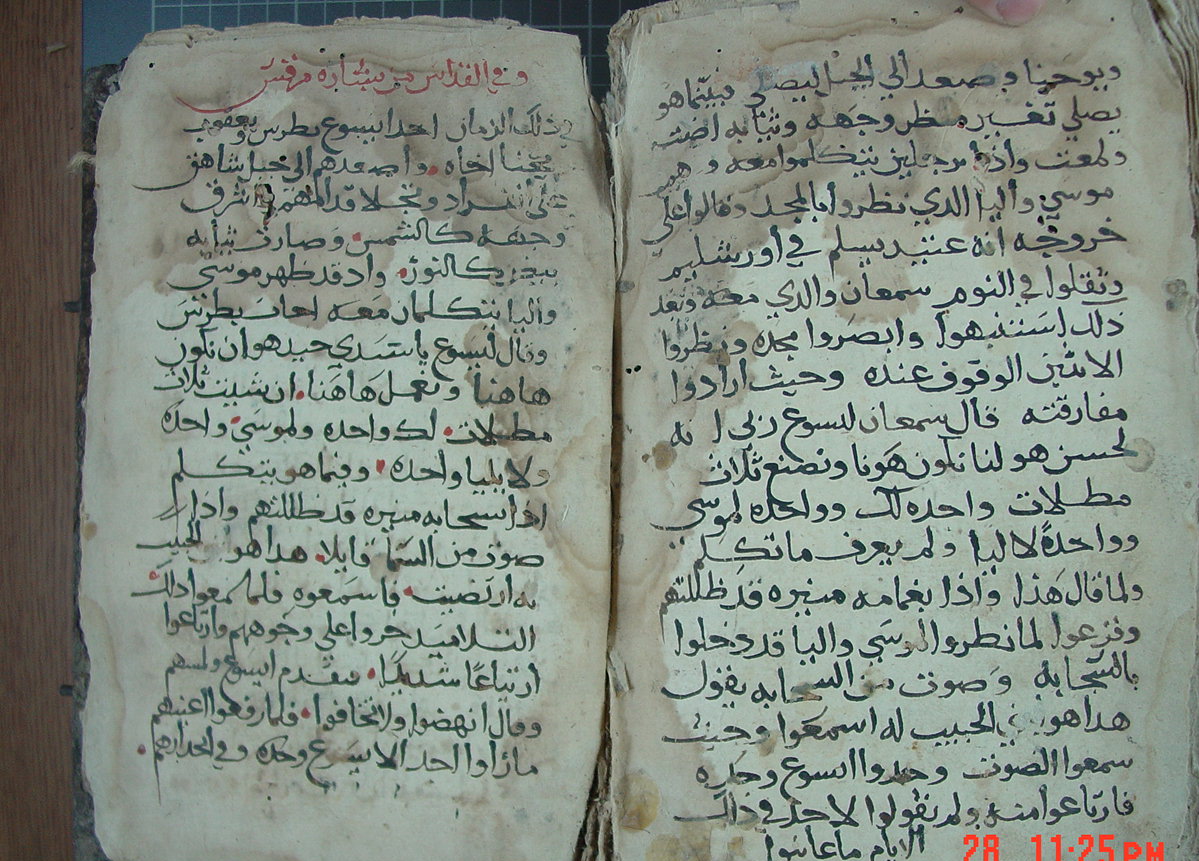 ويوحنا وصعد الي الجبل ليصلي فبينما هو
يصلي تغير منظر وجهه وثيابه اضت
ولمعت واذا برجلين يتكلموا معه وهم
موسي واليا الذي نظروا بالمجد وقالوا علي
خروجه انه عتيد يسلم في اورشليم
وثقلوا في النوم سمعان والذي معه وبعد
ذلك استنبهوا وابصروا مجده ونظروا
الاثنين الوقوف عنده وحيث ارادوا
مفارقته قال سمعان ليسوع ربي انه
لحسن هو لنا نكون هونا ونصنع ثلاث
مظلات واحده لك وواحده لموسي
وواحدةً لاليا ولم يعرف ما تكلم
ولما قال هذا واذا بغمامه منيره قد ظللتهم
وفزعوا لما نظروا الموسي واليا قد دخلوا
بالسحابه وصوت من السحابه يقول
هدا هو ابني الحبيب له اسمعوا وحيث
سمعوا الصوت وجدوا ايسوع وحده
فارتاعوا منه ولم يقولوا لاحد في ذاك
الايام ما عاينوا
وفي القداس من بشاره مرقس
في ذلك الزمان احد ايسوع بطرس ويعقوب
يوحنا اخاه واصعدهم الي جبل شاهق
علي انفراد وتجلا قدامهم واشرق
وجهه كالشمس وصارت ثيابه
بيض كالنور واد قد ظهر موسي
واليا يتكلمان معه اجاب بطرس
وقال ليسوع يا سيدي جيد هو ان نكون
هاهنا ونعمل هاهنا ان شيت ثلاث
مظلات لك واحده ولموسي واحده
ولايليا واحده وفيما هو يتكلم
ادا سحابه منيره قد ظللتهم وادا
صوت من السما قايلا هدا هو الحبيب
به ارتضيت فاسمعوه فلما سمعوا دالك
التلاميد خروا علي وجوههم وارتاعوا
ارتياعًا شديدًا فتقدم ايسوع ولمسهم
وقال انهضوا ولا تخافوا فلما رفعوا اعينهم
ما راوا احد الا يسوع وحده وفي انحدارهم
28 11:25 PM